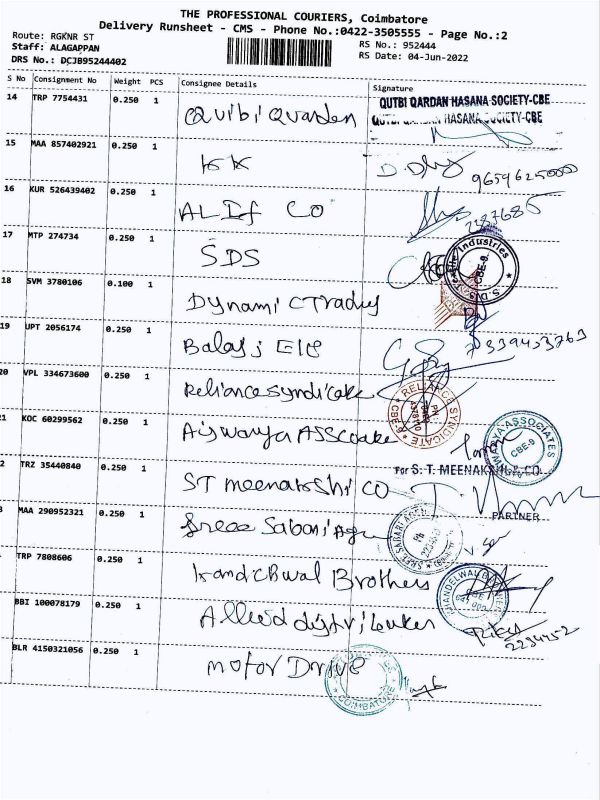 THE PROFESSIONAL COURIERS, Coimbatore
Delivery Runsheet - CMS - Phone No.:0422-3505555 - Page No.:2
Route: RGKNR ST
Staff: ALAGAPPAN
DRS No.: DCJB95244402
RS No.: 952444
RS Date: 04-Jun-2022
S No Consignment No Weight PCS Consignee Details Signature
14 TRP 7754431 0.250 1 Qutbi Qvarden
QUTBI QARDAN HASANA SOCIETY-CBE
QUTBI QARDAN HASANA SOCIETY-CBE
15 MAA 857402921 0.250 1 KK
16 KUR 526439402 0.250 1 ALIf CO
17 MTP 274734 0.250 1 SDS
18 SVM 3780106 0.100 1 Dynamic Trading
CBE-9
19 UPT 2056174 0.250 1 Balaji Ele
7339433763
20 VPL 334673600 0.250 1 Reliance syndicate
RELIANCE SYNDICATE
21 KOC 60299562 0.250 1 Aiswarya ASSCoate
AISWARYA ASSOCIATES
CBE-9
2 TRZ 35440840 0.250 1 ST meenakshi CO
For S. T. MEENAKSHI & CO.
PARTNER
MAA 290952321 0.250 1 Sree Sabari Agn
SREE SABARI AGEN
TRP 7808606 0.250 1 Kandelwal Brothers
BBI 100078179 0.250 1 Allied distributer
2234252
BLR 4150321056 0.250 1 motor Drive
COIMBATORE